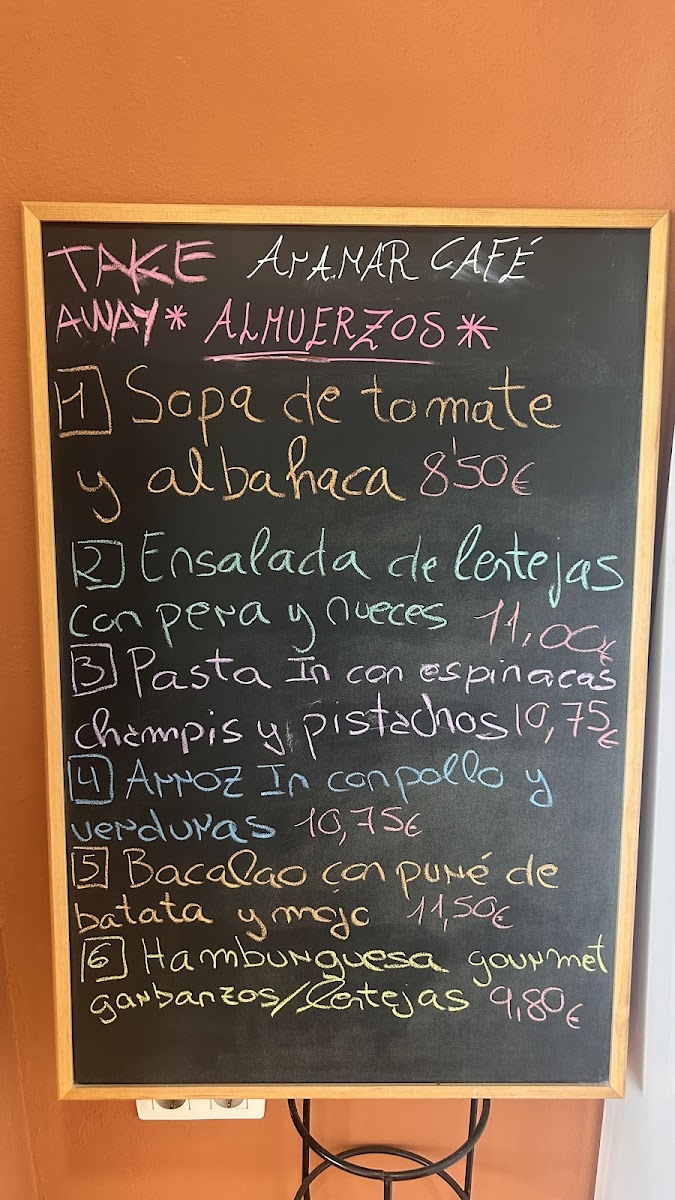 TAKE AMAMAR CAFÉ
AWAY* ALMUERZOS *
1 Sopa de tomate
y albahaca 8'50€
2 Ensalada de lentejas
con pera y nueces 11,00€
3 Pasta In con espinacas
champis y pistachos 10,75€
4 Arroz In con pollo y
verduras 10,75€
5 Bacalao con puré de
batata y mojo 11,50€
6 Hamburguesa gourmet
garbanzos/lentejas 9,80€